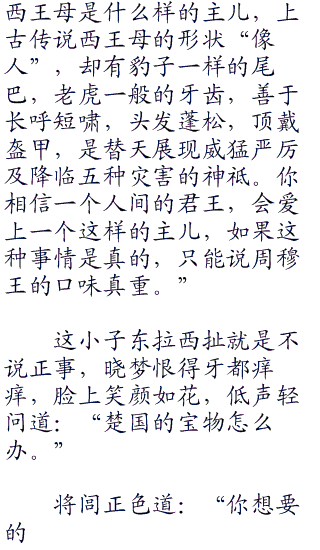 西王母是什么样的主儿，上
古传说西王母的形状“像
人”，却有豹子一样的尾
巴，老虎一般的牙齿，善于
长呼短啸，头发蓬松，顶戴
盔甲，是替天展现威猛严厉
及降临五种灾害的神祗。你
相信一个人间的君王，会爱
上一个这样的主儿，如果这
种事情是真的，只能说周穆
王的口味真重。”
这小子东拉西扯就是不
说正事，晓梦恨得牙都痒
痒，脸上笑颜如花，低声轻
问道：“楚国的宝物怎么
办。”
将闾正色道：“你想要
的